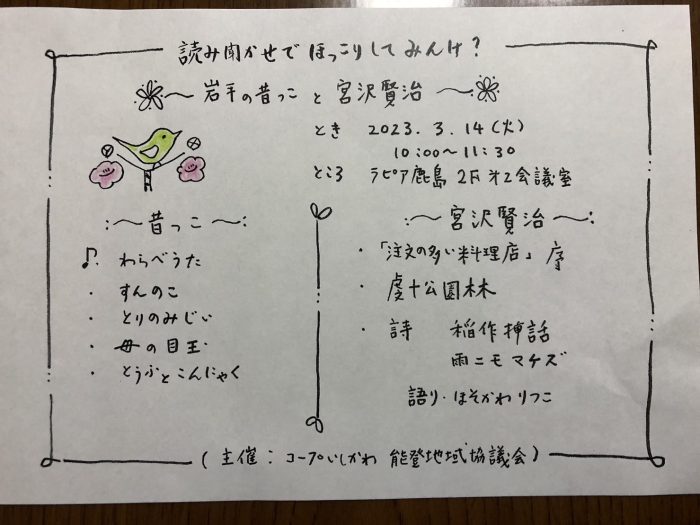 読み聞かせで ほっこりして みんけ?
〜岩手の昔っこ と 宮沢賢治〜
とき 2023. 3. 14 (火)
10:00〜11:30
ところ ラピア鹿島 2F 才2会議室
:〜昔っこ〜:
♫. わらべうた
・ すんのこ
・ とりのみじい
・ 母の目玉
・ とうふとこんにゃく
:〜宮沢賢治〜:
・「注文の多い料理店」序
・ 虔十公園林
・ 詩 稲作挿話
雨ニモマケズ
語り・ほそかわりつこ
(主催: コープいしかわ 能登地域協議会)